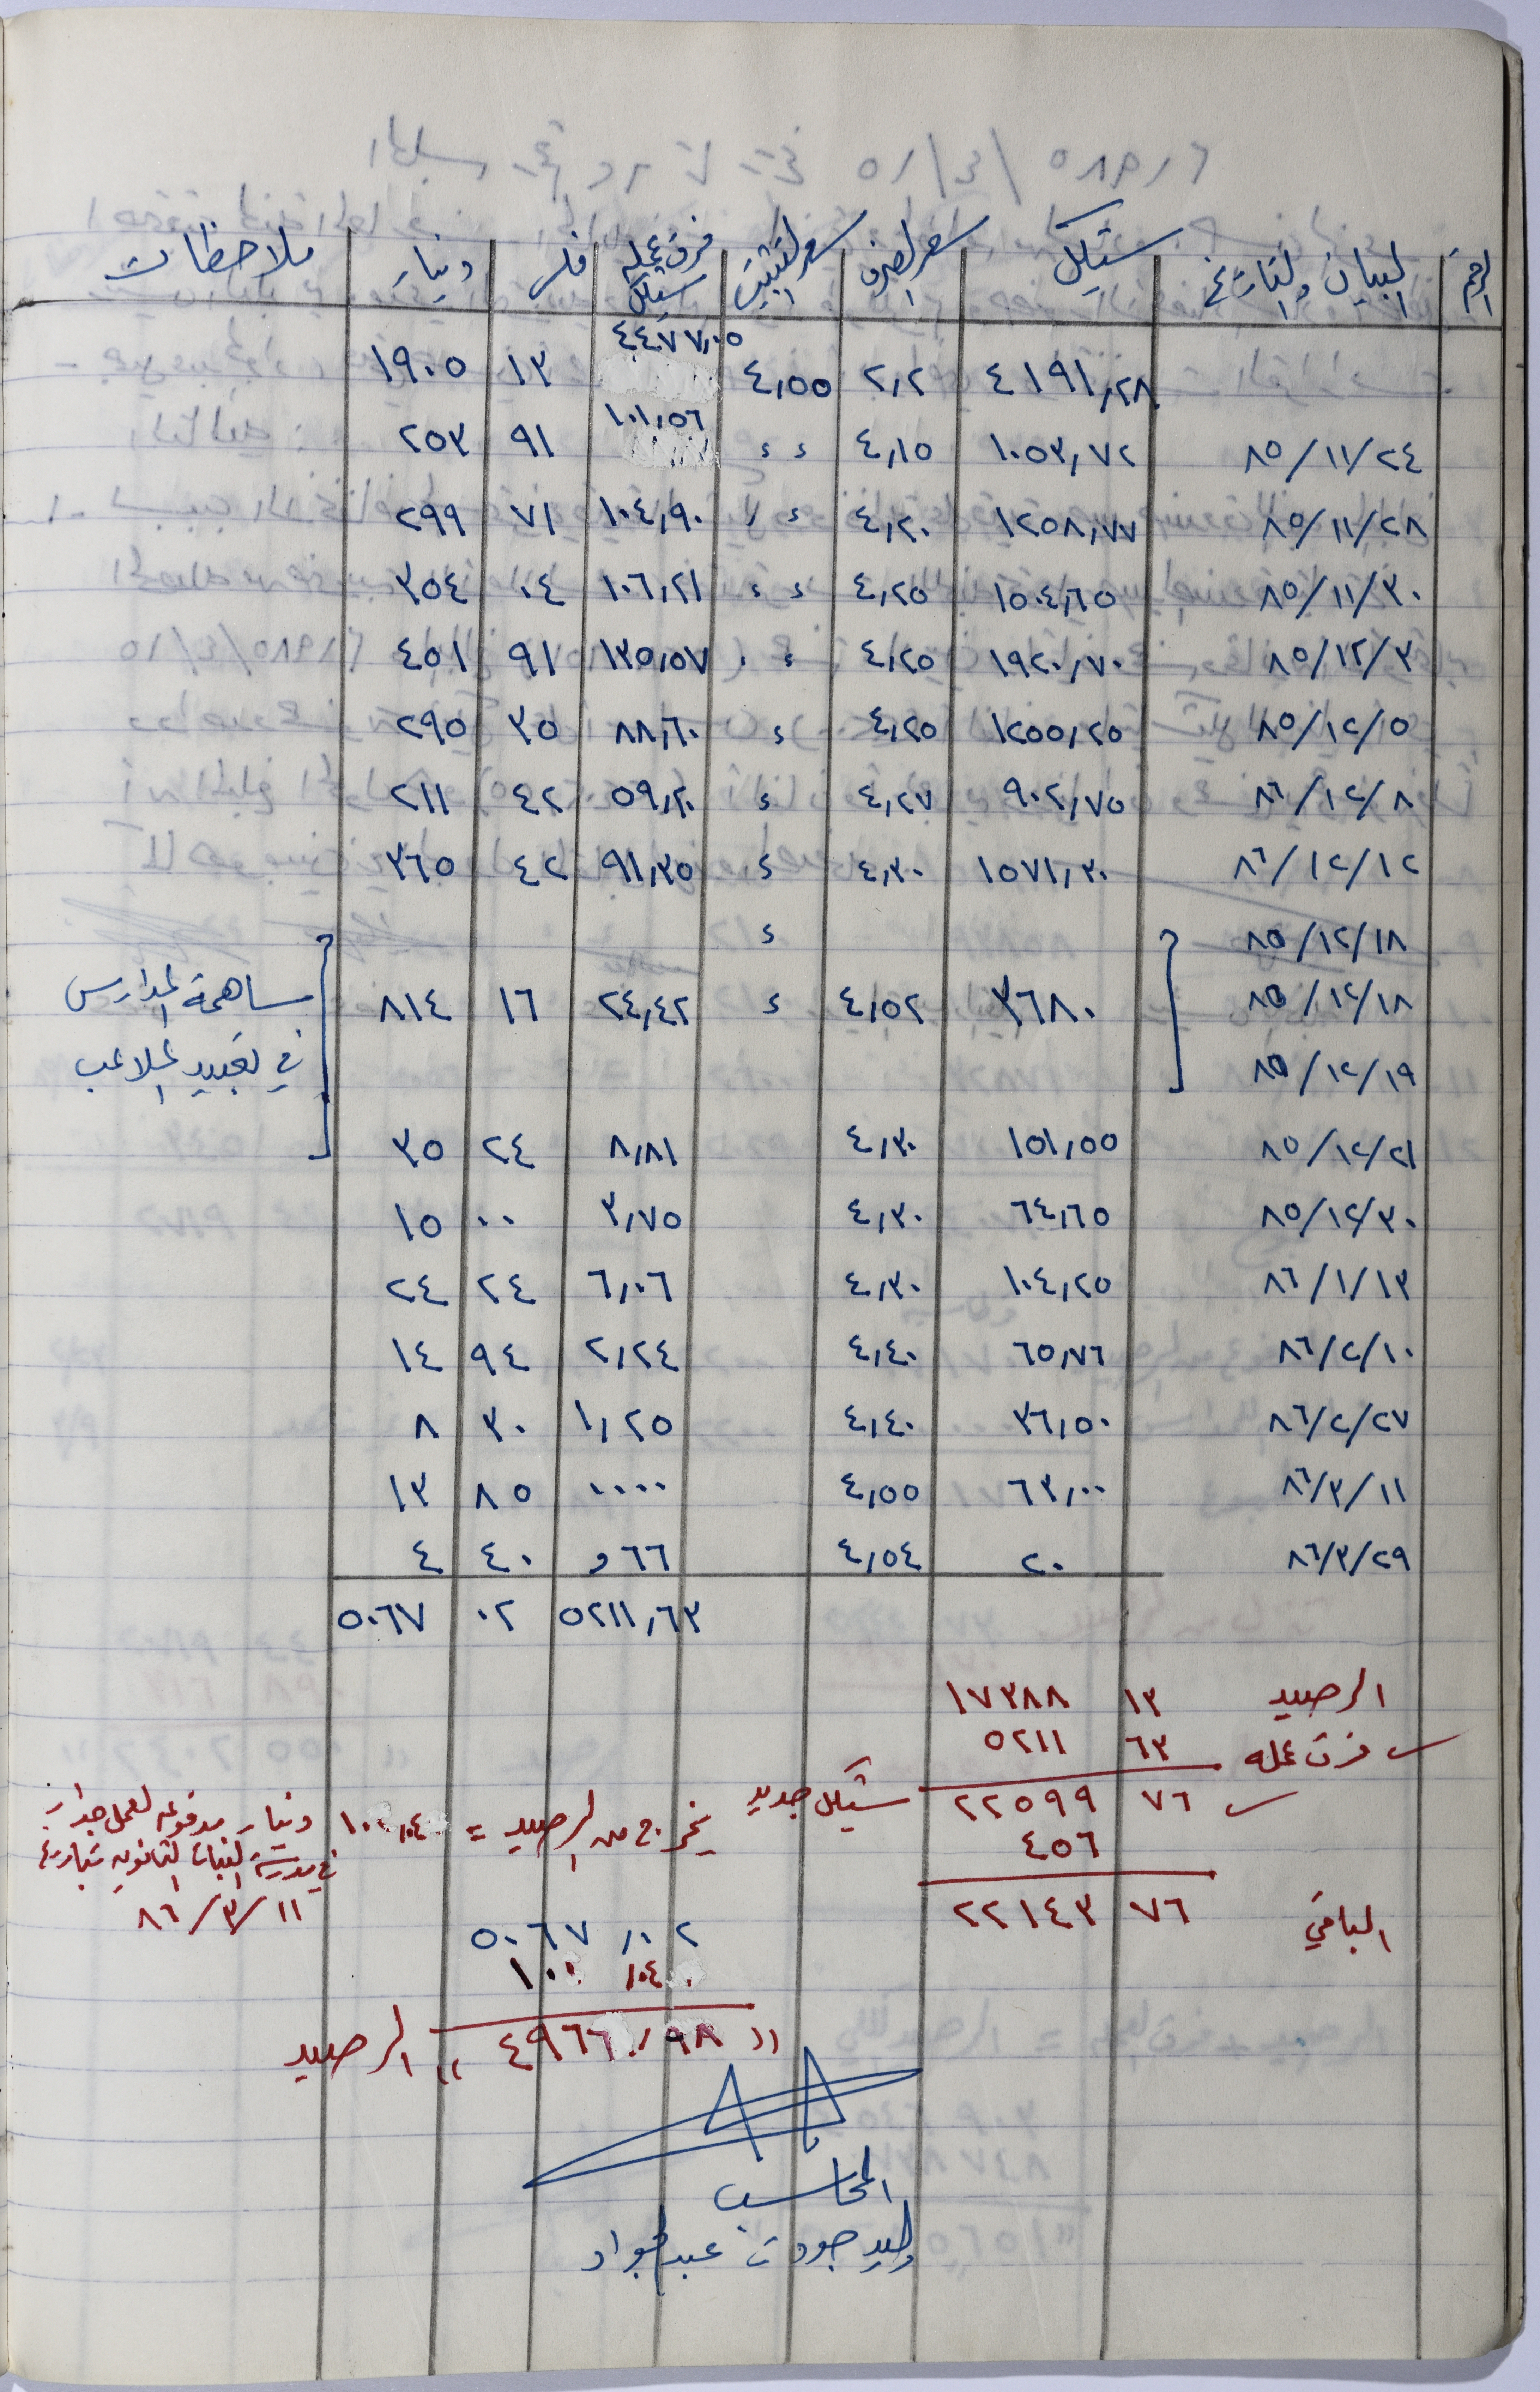 الرقم البيان والتاريخ شيكل سعر الصرف سعر التثبيت فرق عملة شيكل فلس دينار ملاحظات
٤١٩١,٢٨ ٢,٢ ٤,٥٥ ٤٤٧٧,٠٥ ١٣ ١٩٠٥
٨٥/١١/٢٤ ١٠٥٣,٧٢ ٤,١٥ ء ء ١٠١,٥٦ ٩١ ٢٥٣
٨٥/١١/٢٨ ١٢٥٨,٧٧ ٤,٢٠ ء ء ١٠٤,٩٠ ٧١ ٢٩٩
٨٥/١١/٣٠ ١٥٠٤,٦٥ ٤,٢٥ ء ء ١٠٦,٢١ ٠٤ ٣٥٤
٨٥/١٢/٣ ١٩٢٠,٧٠ ٤,٢٥ ء ء ١٣٥,٥٧ ٩١ ٤٥١
٨٥/١٢/٥ ١٢٥٥,٢٥ ٤,٢٥ ء ٨٨,٦٠ ٣٥ ٢٩٥
٨٦/١٢/٨ ٩٠٢,٧٥ ٤,٢٧ ء ٥٩,٢٠ ٤٢ ٢١١
٨٦/١٢/١٢ ١٥٧١,٣٠ ٤,٣٠ ء ٩١,٣٥ ٤٢ ٣٦٥
٨٥/١٢/١٨ ء
٨٥/١٢/١٨ ٣٦٨٠ ٤,٥٢ ء ٢٤,٤٢ ١٦ ٨١٤ مساهمة المدارس
٨٥/١٢/١٩ في تعبيد الملاعب
٨٥/١٢/٢١ ١٥١,٥٥ ٤,٣٠ ٨,٨١ ٢٤ ٣٥
٨٥/١٢/٣٠ ٦٤,٦٥ ٤,٣٠ ٣,٧٥ ٠٠ ١٥
٨٦/١/١٣ ١٠٤,٢٥ ٤,٣٠ ٦,٠٦ ٢٤ ٢٤
٨٦/٢/١٠ ٦٥,٧٦ ٤,٤٠ ٢,٢٤ ٩٤ ١٤
٨٦/٢/٢٧ ٣٦,٥٠ ٤,٤٠ ١,٢٥ ٣٠ ٨
٨٦/٣/١١ ٦٣,٠٠ ٤,٥٥ ٠٠٠٠ ٨٥ ١٣
٨٦/٣/٢٩ ٢٠ ٤,٥٤ ٦٦و ٤٠ ٤
٥٢١١,٦٣ ٠٢ ٥٠٦٧
الرصيد ١٣ ١٧٣٨٨
فرق عمله ٦٣ ٥٢١١
٧٦ ٢٢٥٩٩ شيكل جديد
٤٥٦ يخرج من الرصيد = ١٠٠,٠٤٠ دينار مدفوعه لعمل جدار
في مدرسة البنات الثانويه بتاريخ
٨٦/٣/١١
الباقي ٧٦ ٢٢١٤٣
٥٠٦٧,٠٢
١٠٠,٠٤٠
" ٤٩٦٦,٩٨ " الرصيد
المحاسب
وليد جودت عبد الجواد